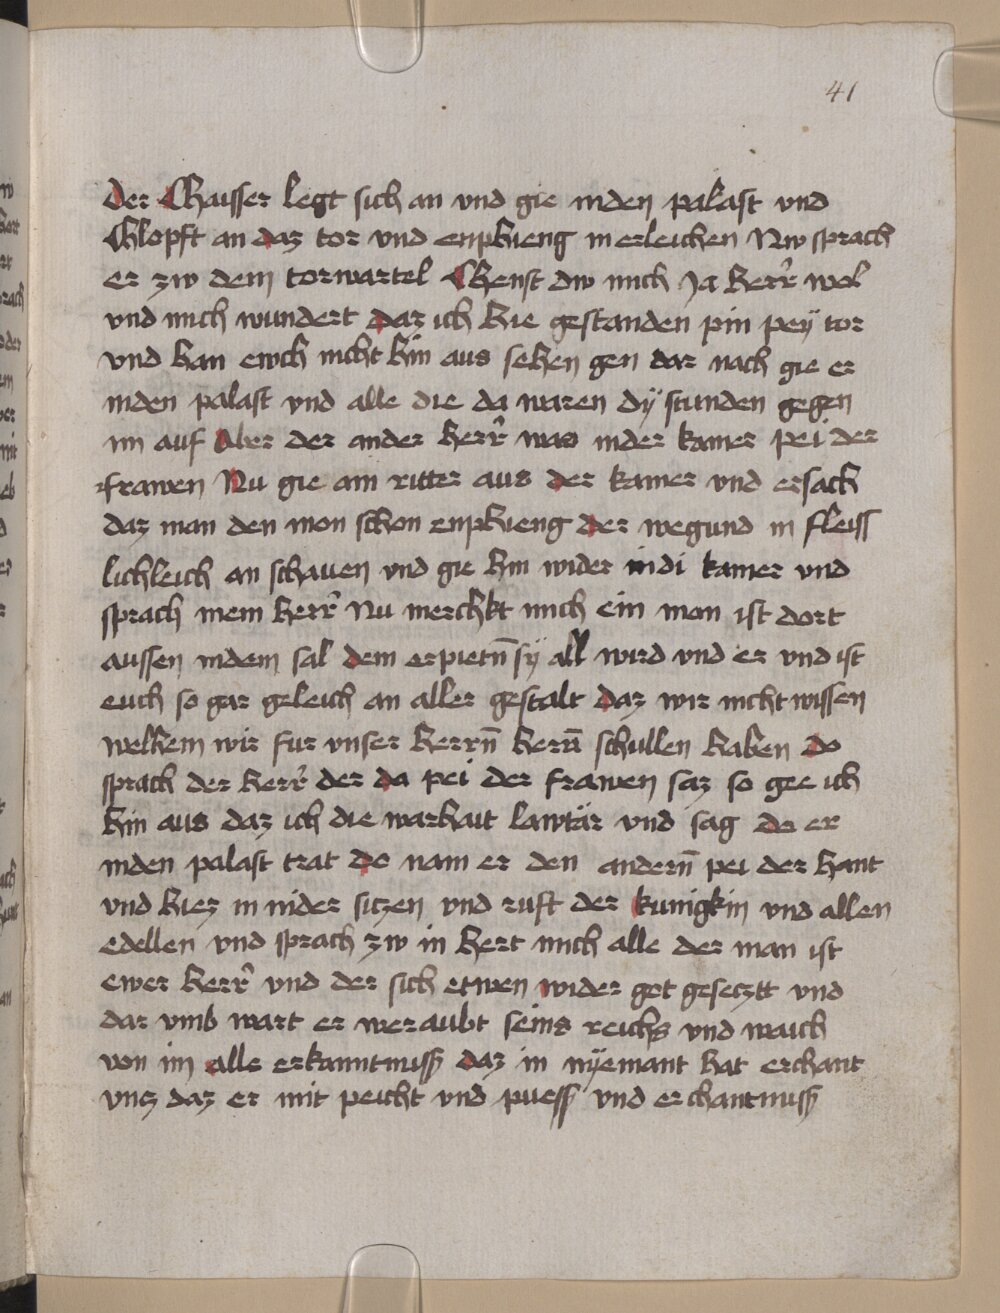 41
der Chaisser legt sich an vnd gie inden palast vnd
Chlopft an daz tor vnd enphieng in erleichen Nw sprach
er zw dem torwartel Chenst dw mich Ja herr wol
vnd mich wundert daz ich hie gestanden pin peÿ tor
vnd han ewch nicht hin aus sehen gen dar nach gie er
inden palast vnd alle die da waren dÿ stunden gegen
im auf Aber der ander herr was inder kamer pei der
frawen Nu gie ain ritter aus der kamer vnd ersach
daz man den mon schon enphieng der wegund in fleiss
lichleich an schauen vnd gie hin wider indi kamer vnd
sprach mein herr Nu merchkt mich ein mon ist dort
aussen indem sal dem erpietn̄ sÿ all wird vnd er vnd ist
euch so gar geleich an aller gestalt daz wir nicht wissen
welhem wir fur vnser herrn̄ herñ schullen haben do
sprach der herr der da pei der frawen saz so gee ich
hin aus daz ich die warhait lawtär vnd sag do er
inden palast trat do nam er den andern̄ pei der hant
vnd hiez in nider siczen vnd ruft der kunigkin vnd allen
edellen vnd sprach zw in hert mich alle der man ist
ewer herr vnd der sich etwen wider got geseczt vnd
dar vmb wart er weraubt seins reichs vnd waich
von im alle erkanntnuss daz in nÿemant hat erchant
vncz daz er mit peicht vnd puess vnd erchantnuss